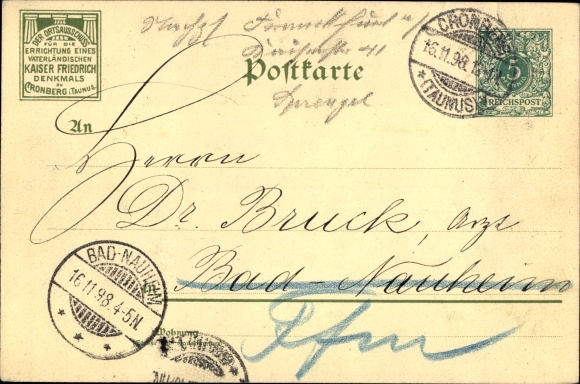 DER ORTSAUSSCHUSS
FÜR DIE
ERRICHTUNG EINES
VATERLÄNDISCHEN
KAISER FRIEDRICH
DENKMALS
ZU
CRONBERG i. TAUNUS.
Frankfurt
41
Sprengel
Postkarte
CRONBERG
16.11.98
(TAUNUS)
5
REICHSPOST
An
Herrn
Dr. Bruck, Arzt
in Bad-Nauheim
Ffm
BAD-NAUHEIM
16.11.98.4-5N.
Wohnung